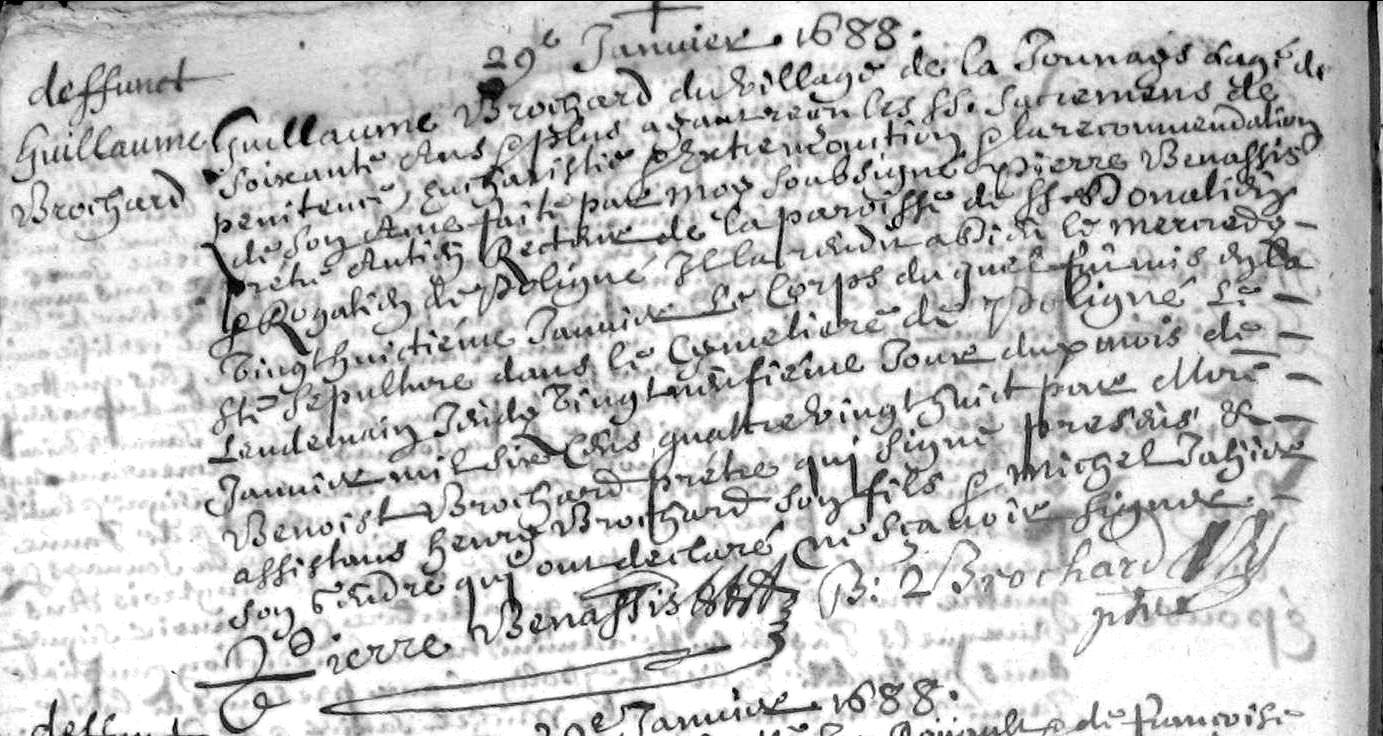 29e Janvier. 1688.
deffunct
Guillaume
Brochard
Guillaume Brochard du village de la Tounays aagé de
soixante Ans & plus ayant receu les SS. Sacremens de
penitence, Eucharistie & Extreme onction & la recommendation
de son Ame faite par moy soubsigné Pierre Benassis
Prêtre Antien Recteur de la paroisse de SS. Donatien
& Rogatien de Poligné Il la rendit a Dieu le mercredy
Vingt huictiéme Janvier Le Corps du quel fut mis en la
Ste Sepulture dans le Cymetiere de Poligné Le
Lendemain Jeudy Vingt neufiéme Jour du mois de
Janvier mil six Cens quattre vingt huict par Mire
Benoist Brochard prêtre qui signe presens &
assistans Henry Brochard son fils & Michel
son gendre qui ont declaré ne sçavoir signer.
Pierre Benassis B: Brochard
pbre
deffunct
29e Janvier. 1688.
de Françoise